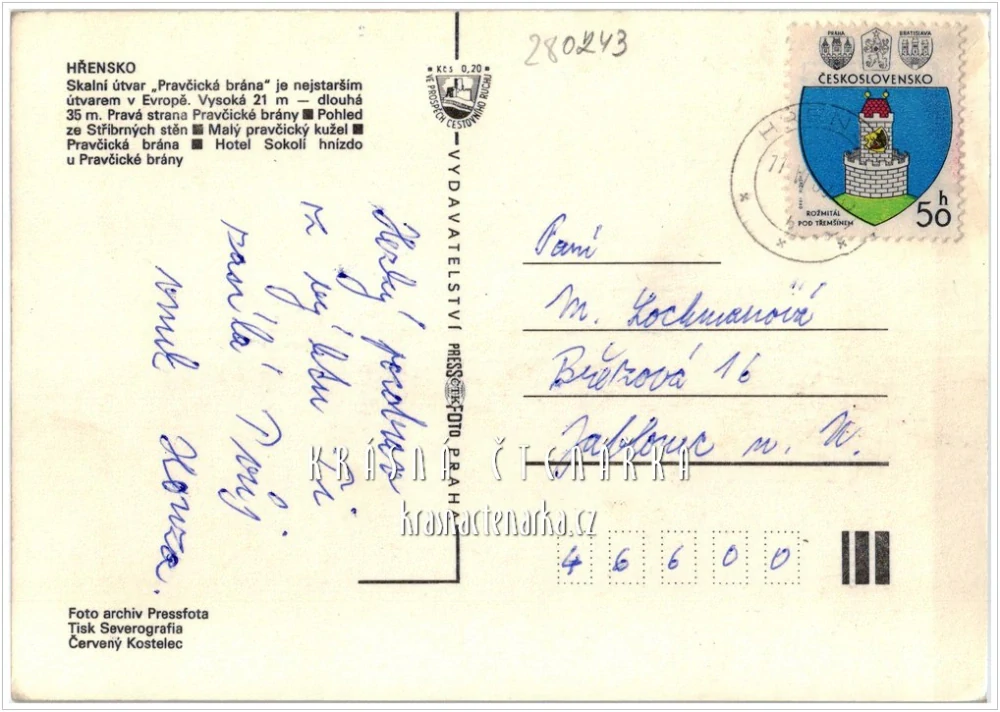 280243
HŘENSKO
Skalní útvar „Pravčická brána" je nejstarším
útvarem v Evropě. Vysoká 21 m — dlouhá
35 m. Pravá strana Pravčické brány ■ Pohled
ze Stříbrných stěn ■ Malý pravčický kužel ■
Pravčická brána ■ Hotel Sokolí hnízdo
u Pravčické brány
Kčs 0,20
VE PROSPĚCH CESTOVNÍHO RUCHU
VYDAVATELSTVÍ PRESSFOTO PRAHA
ČTK
PRAHA
BRATISLAVA
ČESKOSLOVENSKO
ROŽMITÁL
POD TŘEMŠÍNEM
50 h
Hezký pozdrav
z
Ti
Tvůj
vnuk Honza.
Paní
M. Lochmanová
Březová 16
Jablonec n. N.
KRÁSNÁ ČTENÁŘKA
krasnactenarka.cz
46600
Foto archiv Pressfota
Tisk Severografia
Červený Kostelec